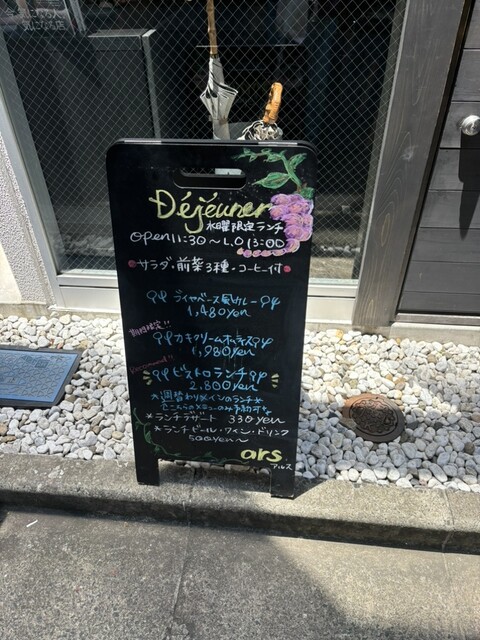 気になる店
Déjeuner
水曜限定ランチ
open 11:30～L.O 13:00
サラダ・前菜3種・コーヒー付
ブイヤベース風カレー
1,480yen
期間限定!!
カキクリームオムライス
1,980yen
Recommend!!
ビストロランチ
2,800yen
★週替わりメインのランチ★
★ランチデザート 330yen
★ランチビール・ワイン・ドリンク
500yen～
ars
アルス